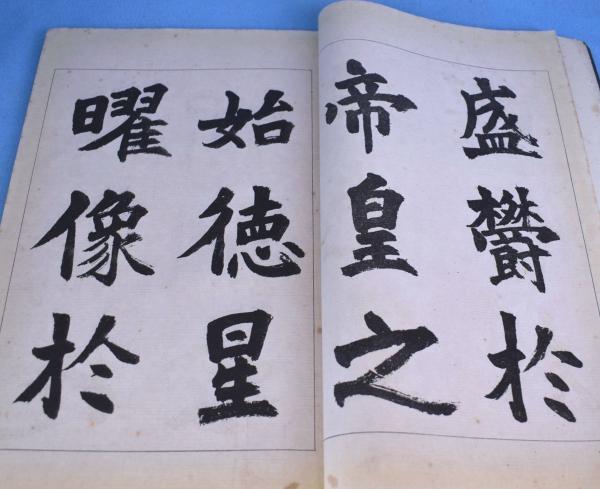 盛欝於
帝皇之
始徳星
曜像於